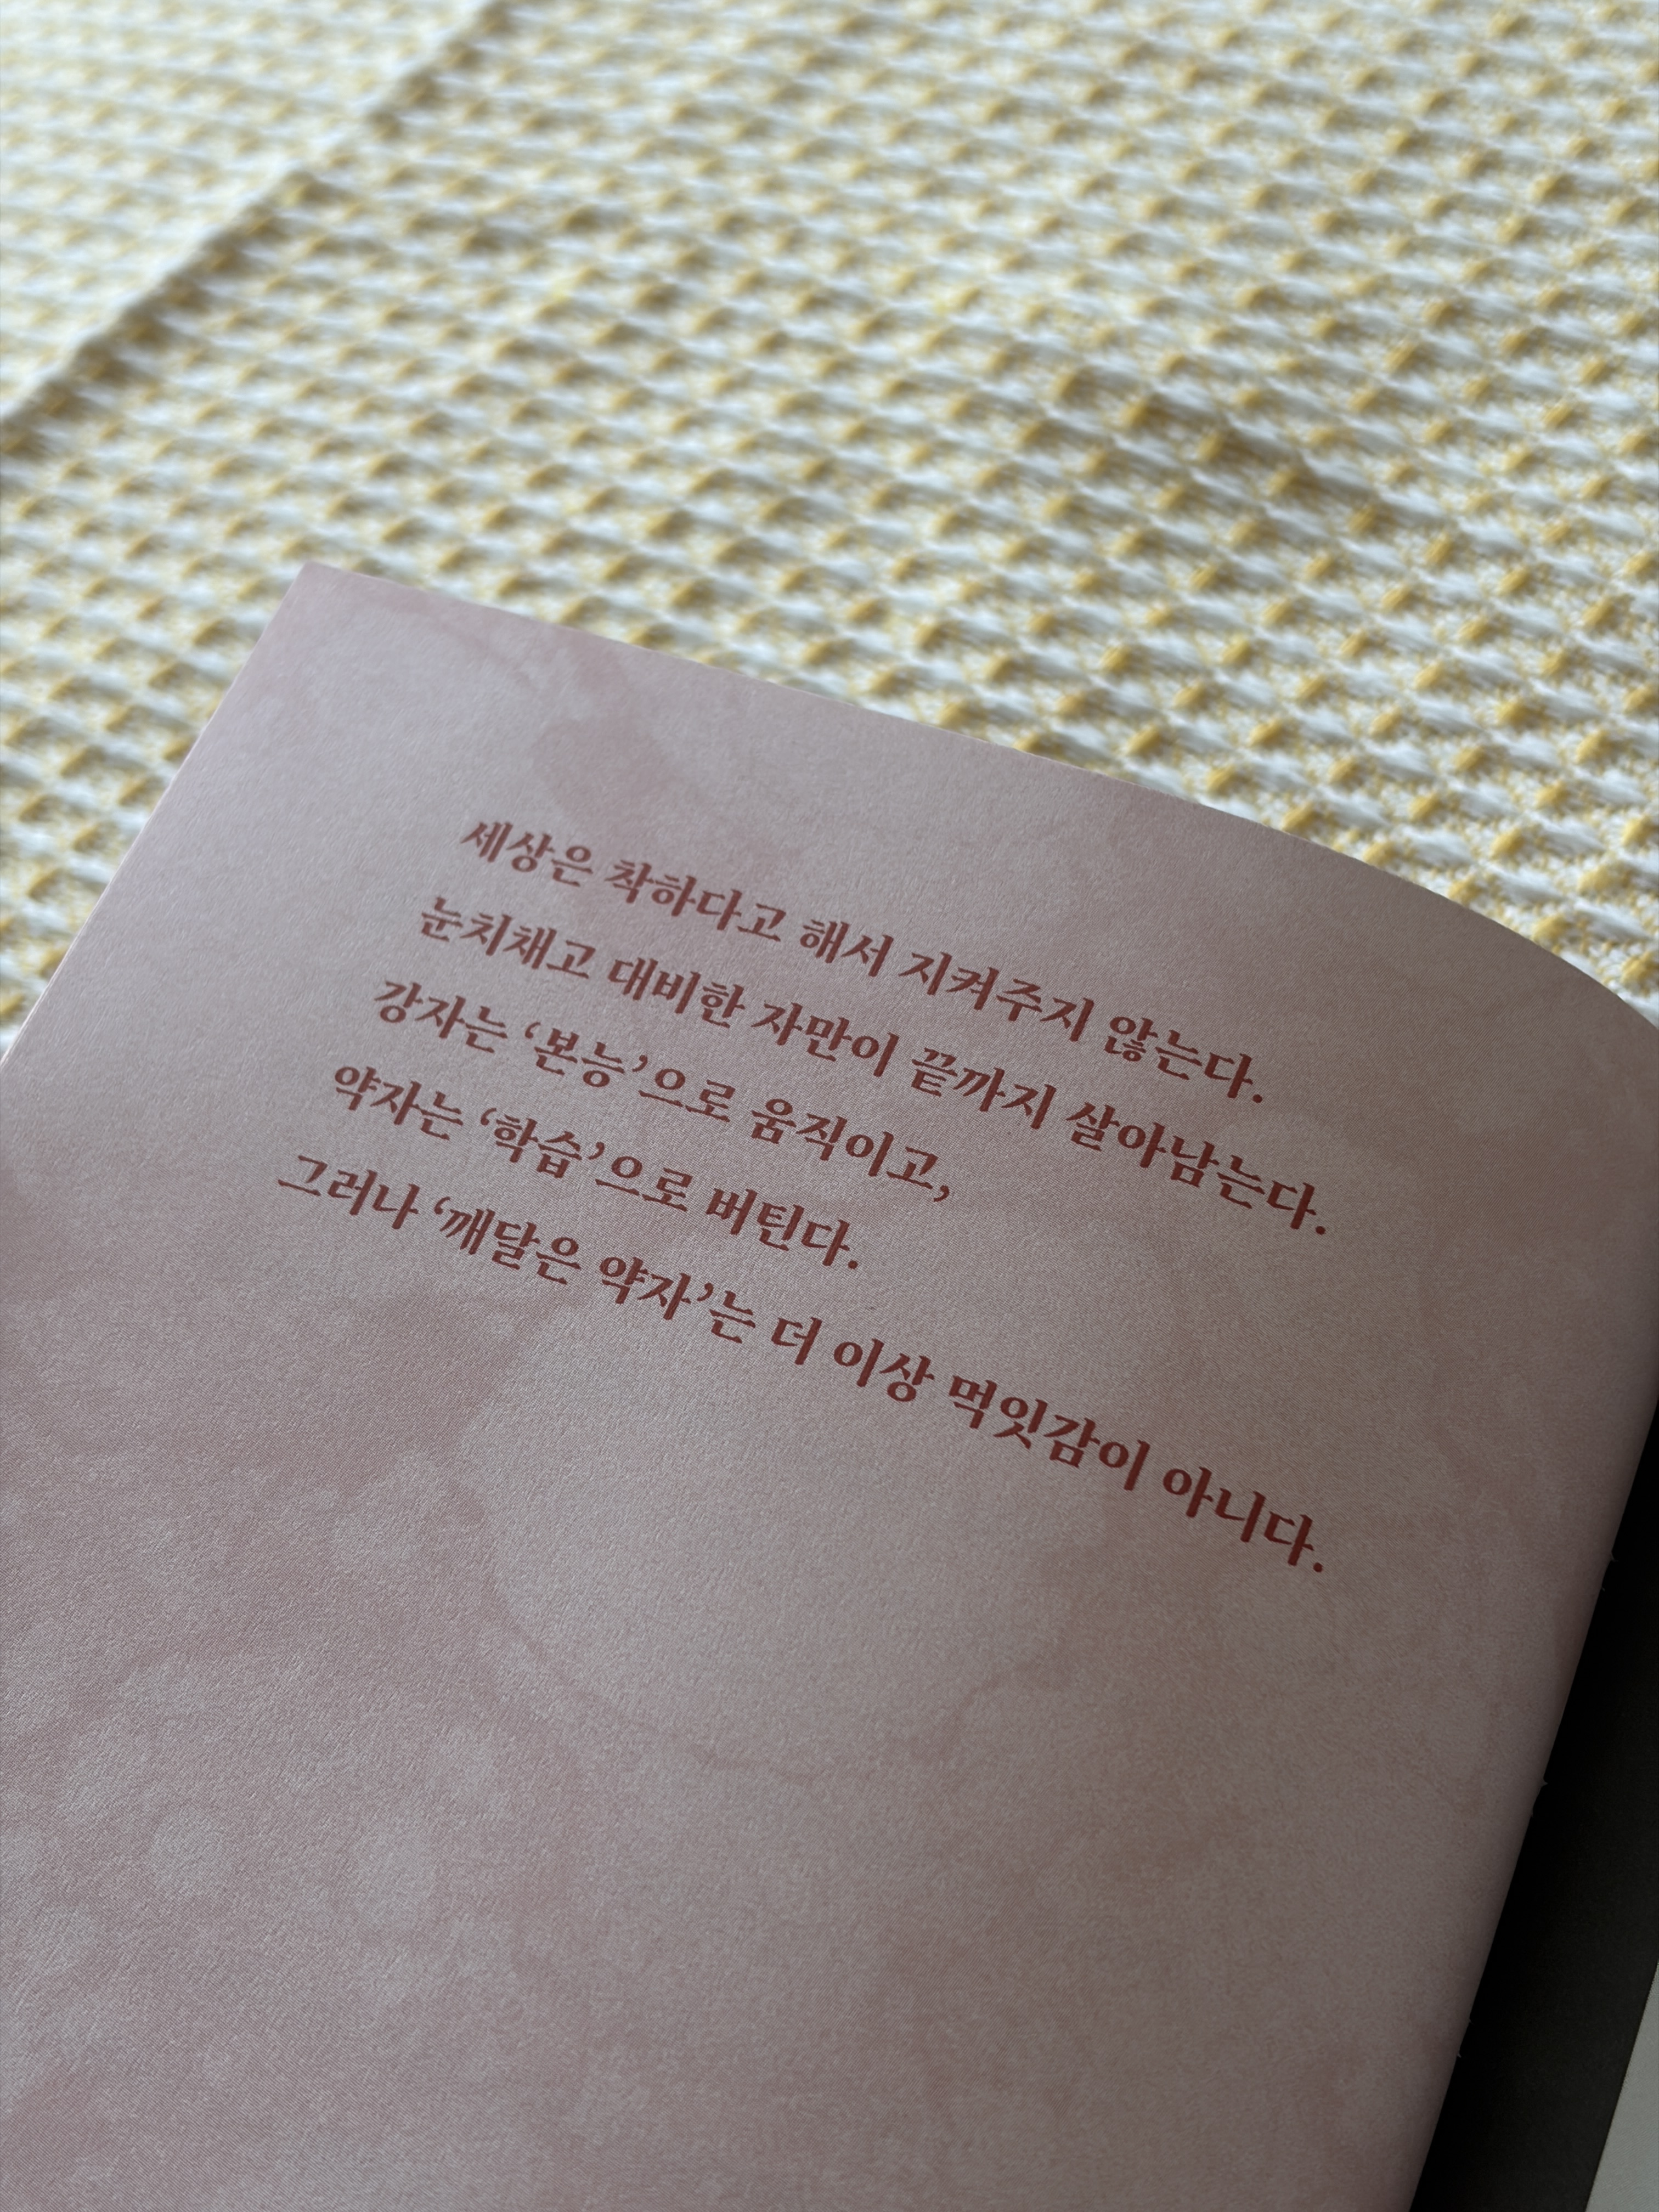 세상은 착하다고 해서 지켜주지 않는다.
눈치채고 대비한 자만이 끝까지 살아남는다.
강자는 ‘본능’으로 움직이고,
약자는 ‘학습’으로 버틴다.
그러나 ‘깨달은 약자’는 더 이상 먹잇감이 아니다.